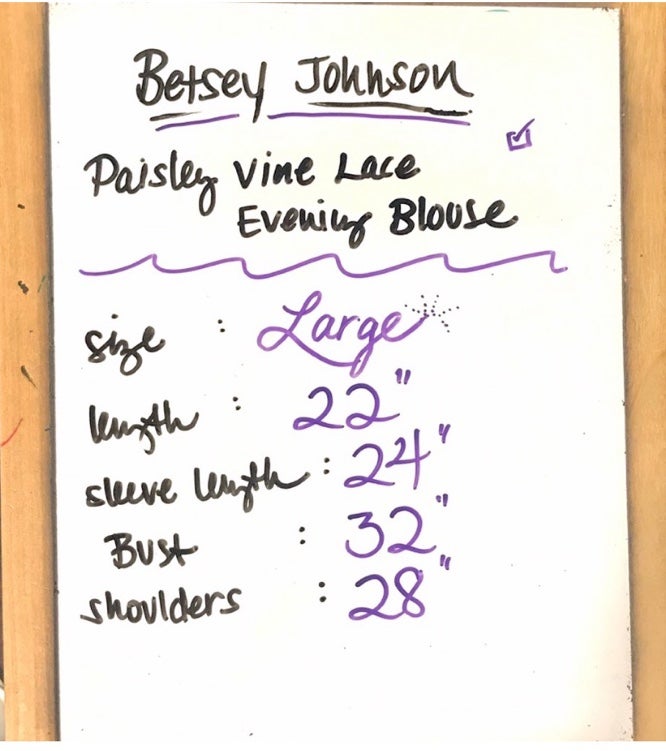 Betsey Johnson
Paisley Vine Lace
Evening Blouse
size : Large
length : 22"
sleeve length : 24"
Bust : 32"
shoulders : 28"